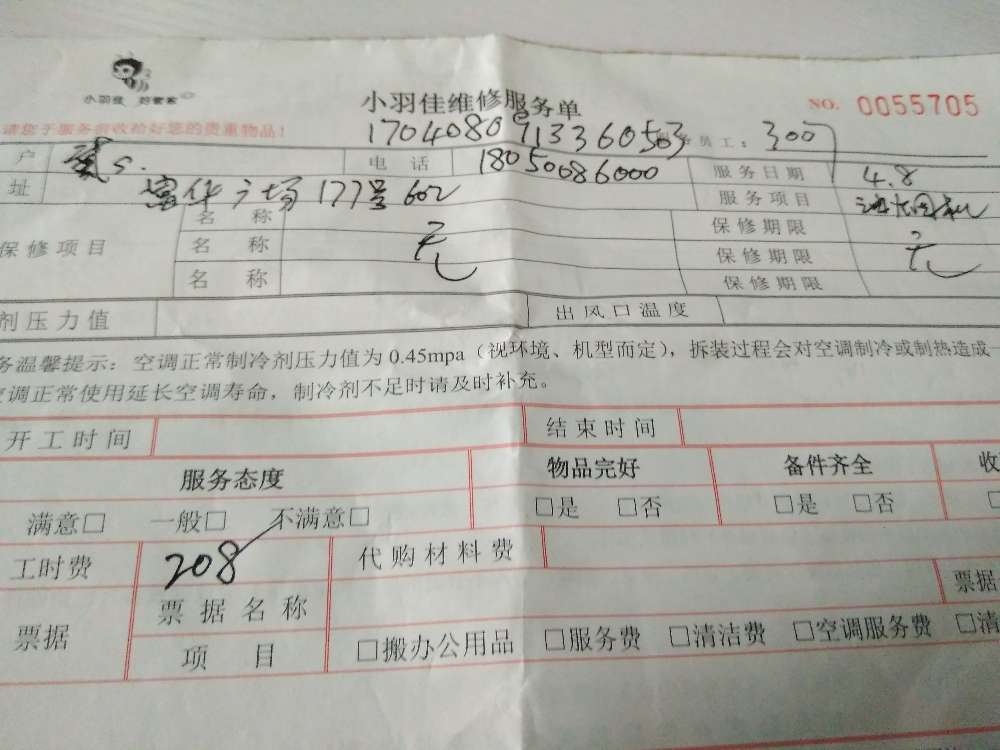 小羽佳 好管家
小羽佳维修服务单
NO. 0055705
请您于服务前收拾好您的贵重物品!
1704080913360503 员工: 3007
户 s. 电话 18050086000 服务日期 4.8
址 富华广场177号602 服务项目
保修项目 名称 无 保修期限 无
名称 保修期限
名称 保修期限
剂压力值 出风口温度
务温馨提示: 空调正常制冷剂压力值为0.45mpa (视环境、机型而定), 拆装过程会对空调制冷或制热造成一
调正常使用延长空调寿命, 制冷剂不足时请及时补充。
开工时间 结束时间
服务态度 物品完好 备件齐全 收
满意□ 一般□ 不满意□ □是 □否 □是 □否 □
工时费 208 代购材料费
票据 票据名称 票据
项目 □搬办公用品 □服务费 □清洁费 □空调服务费 □清